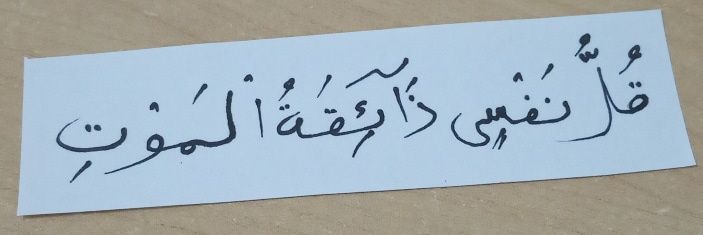 قُلُّ نَفْسٍ ذَآئِقَةُ الْمَوْتِ